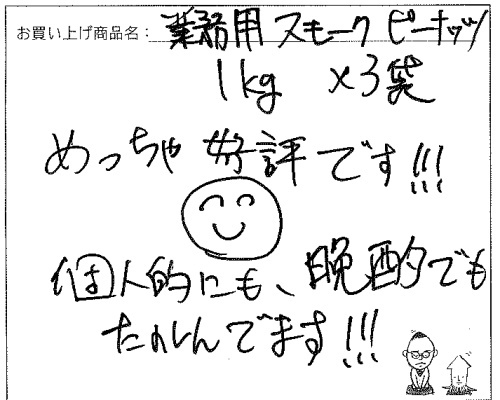 お買い上げ商品名：業務用 スモーク ピーナッツ
1kg ×3袋
めっちゃ 好評です!!!
個人的にも、晩酌でも
たのしんでます!!!